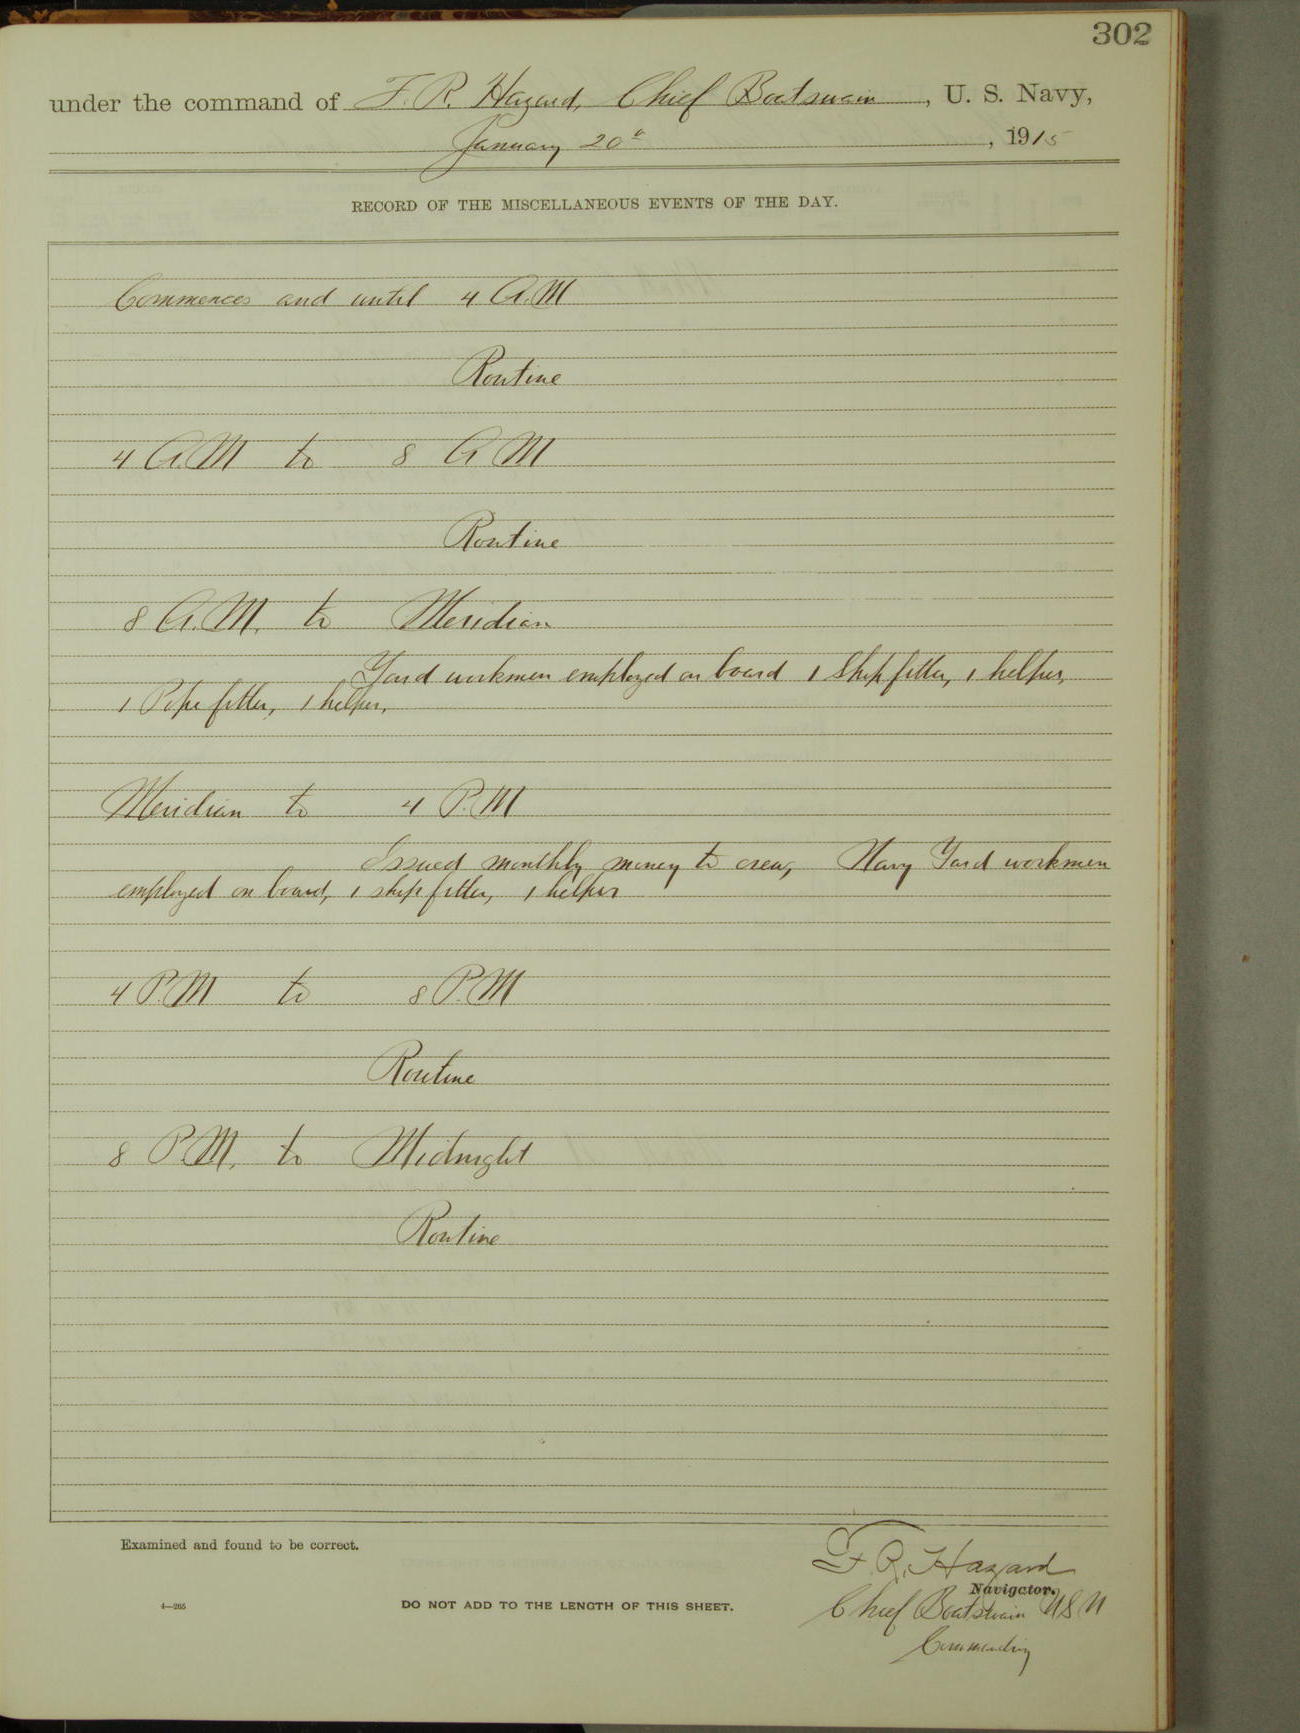 302
under the command of F. R. Hazard, Chief Boatswain, U. S. Navy,
January 20th, 1915
RECORD OF THE MISCELLANEOUS EVENTS OF THE DAY.
Commences and until 4 A.M
Routine
4 A.M to 8 A M
Routine
8 A.M. to Meridian
Yard workmen employed on board 1 Ship fitter, 1 helper,
1 Pipe fitter, 1 helper.
Meridian to 4 P.M
Issued monthly money to crew, Navy Yard workmen
employed on board, 1 ship fitter, 1 helper
4 P.M to 8 P.M
Routine
8 P.M. to Midnight
Routine
Examined and found to be correct.
F. R. Hazard
Navigator.
Chief Boatswain U S N
Commanding
4—265
DO NOT ADD TO THE LENGTH OF THIS SHEET.